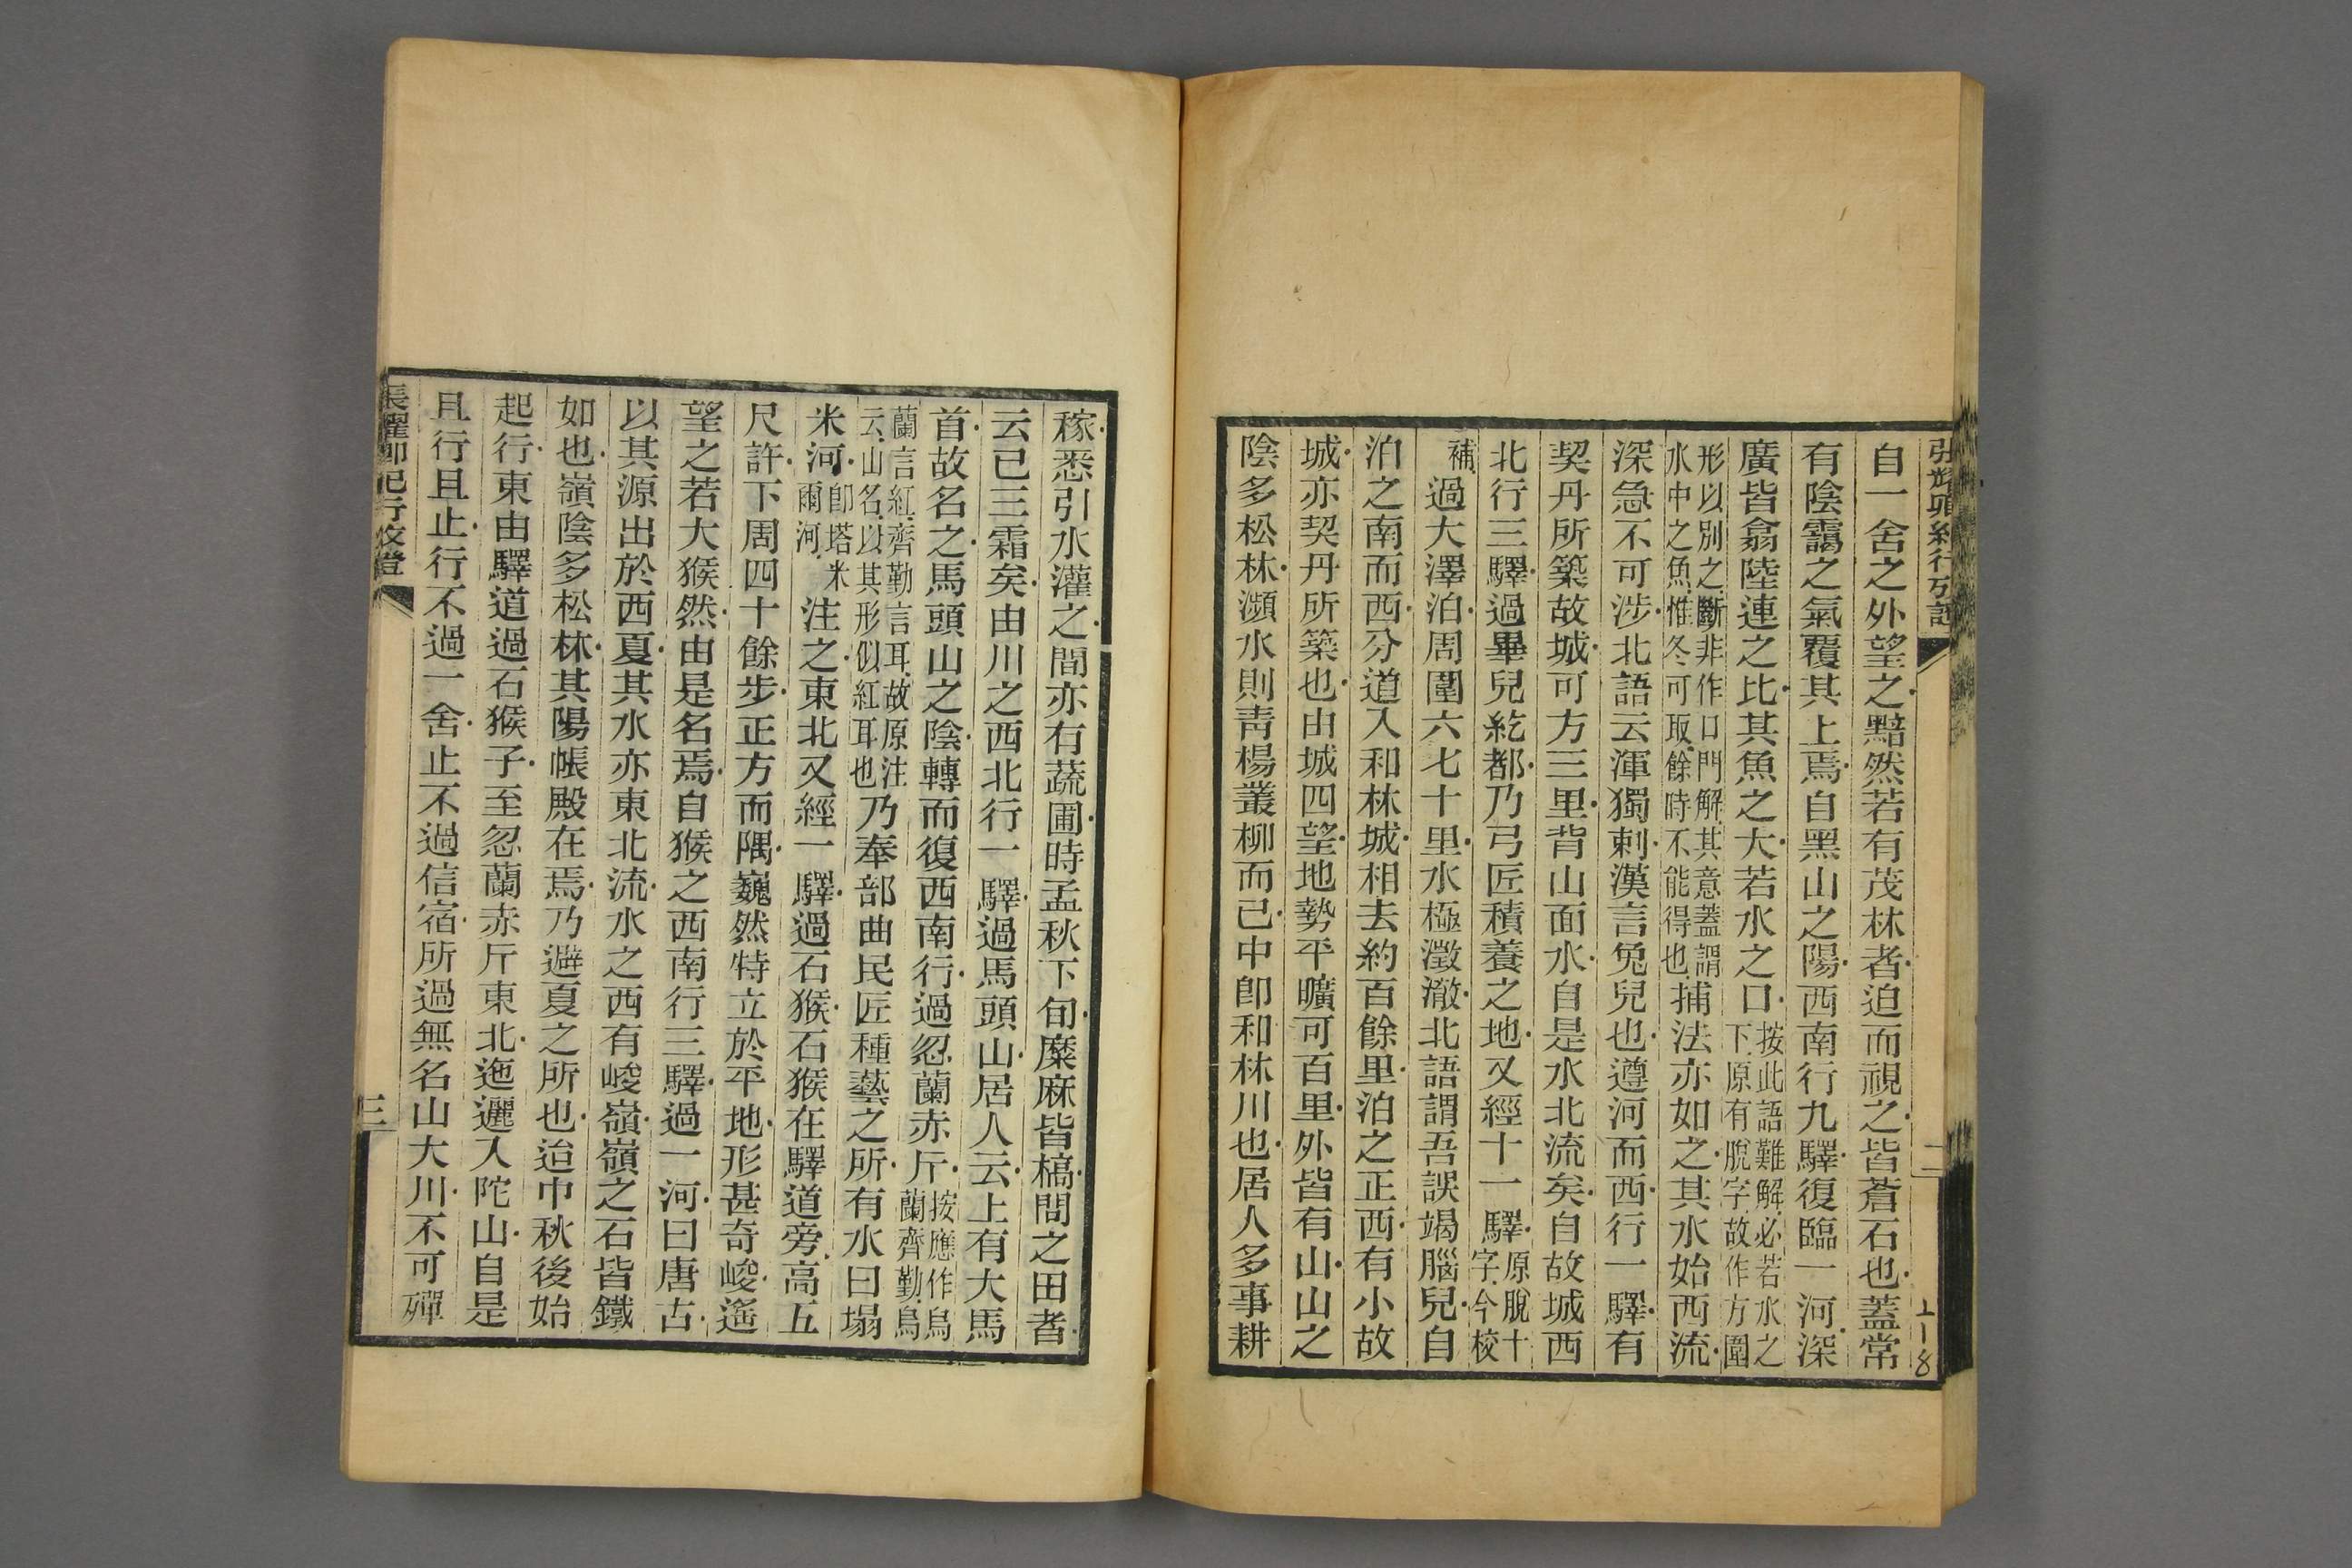 自一舍之外望之黯然若有茂林者迫而視之皆蒼石也蓋常
有陰靄之氣覆其上焉自黑山之陽西南行九驛復臨一河深
廣皆翕陸連之比其魚之大若水之口按此語難解必若水之下原有脫字故作方圍
形以別之斷非作口門解其意蓋謂水中之魚惟冬可取餘時不能得也捕法亦如之其水始西流
深急不可涉北語云渾獨剌漢言兔兒也遵河而西行一驛有
契丹所築故城可方三里背山面水自是水北流矣自故城西
北行三驛過畢兒紇都乃弓匠積養之地又經十一驛原脫十字今校
補過大澤泊周圍六七十里水極澄澈北語謂吾誤竭腦兒自
泊之南而西分道入和林城相去約百餘里泊之正西有小故
城亦契丹所築也由城四望地勢平曠可百里外皆有山山之
陰多松林瀕水則靑楊叢柳而已中卽和林川也居人多事耕
二
上-8
稼悉引水灌之間亦有蔬圃時孟秋下旬糜麻皆槁問之田者
云已三霜矣由川之西北行一驛過馬頭山居人云上有大馬
首故名之馬頭山之陰轉而復西南行過忽蘭赤斤按應作烏蘭齊勤烏
蘭言紅齊勤言耳故原注云山名以其形似紅耳也乃奉部曲民匠種藝之所有水曰塌
米河卽塔米爾河注之東北又經一驛過石猴石猴在驛道旁高五
尺許下周四十餘步正方而隅巍然特立於平地形甚奇峻遙
望之若大猴然由是名焉自猴之西南行三驛過一河曰唐古
以其源出於西夏其水亦東北流水之西有峻嶺嶺之石皆鐵
如也嶺陰多松林其陽帳殿在焉乃避夏之所也迨中秋後始
起行東由驛道過石猴子至忽蘭赤斤東北迤邐入陀山自是
且行且止行不過一舍止不過信宿所過無名山大川不可殫
張耀卿記行攷證
三